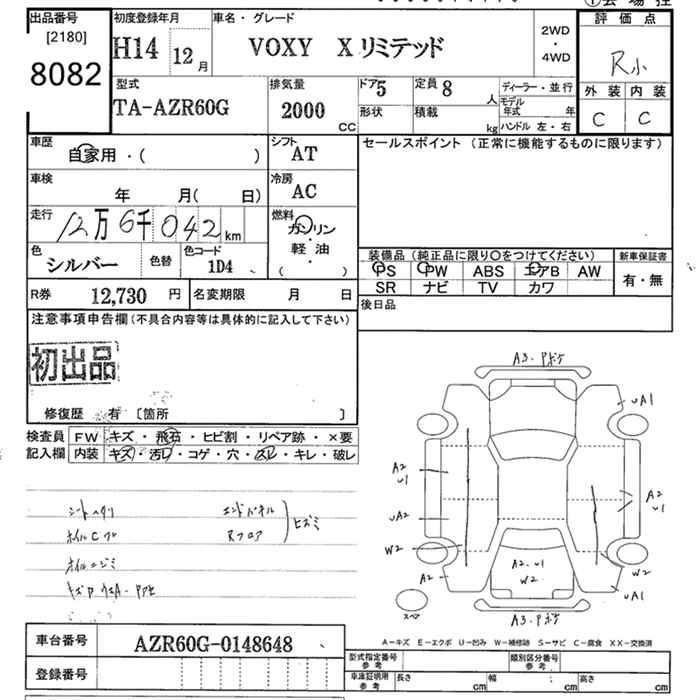 出品番号
[2180]
8082
初度登録年月
H14
12月
車名・グレード
VOXY X リミテッド
2WD
・
4WD
評価点
R小
外装 内装
C C
型式
TA-AZR60G
排気量
2000
CC
ドア
5
形状
定員
8
人
積載
kg
ディーラー・並行
モデル年式 年
ハンドル 左・右
車歴
自家用・( )
シフト
AT
セールスポイント (正常に機能するものに限ります)
車検
年 月( 日)
冷房
AC
走行
12万6千042 km
燃料
ガソリン
・
軽油
( )
色
シルバー
色替
色コード
1D4
装備品 (純正品に限り○をつけてください)
PS PW ABS エアB AW
SR ナビ TV カワ
新車保証書
有・無
R券
12,730 円
名変期限 月 日
後日品
注意事項申告欄(不具合内容等は具体的に記入して下さい)
初出品
修復歴 有 〔箇所 〕
検査員記入欄
FW キズ・飛石・ヒビ割・リペア跡・×要
内装 キズ・汚レ・コゲ・穴・スレ・キレ・破レ
シートヘタリ
エンドパネル
Rフロア
ヒズミ
A3・Pボケ
UA1
A2
U1
UA2
W2
A2
A2
U1
W2
UA1
A2・U1
W2
A3・Pボケ
スペア
A-キズ E-エクボ U-凹み W-補修跡 S-サビ C-腐食 XX-交換済
車台番号
AZR60G-0148648
登録番号
型式指定番号
参考
類別区分番号
参考
車庫証明用
参考
長さ cm
幅 cm
高さ cm